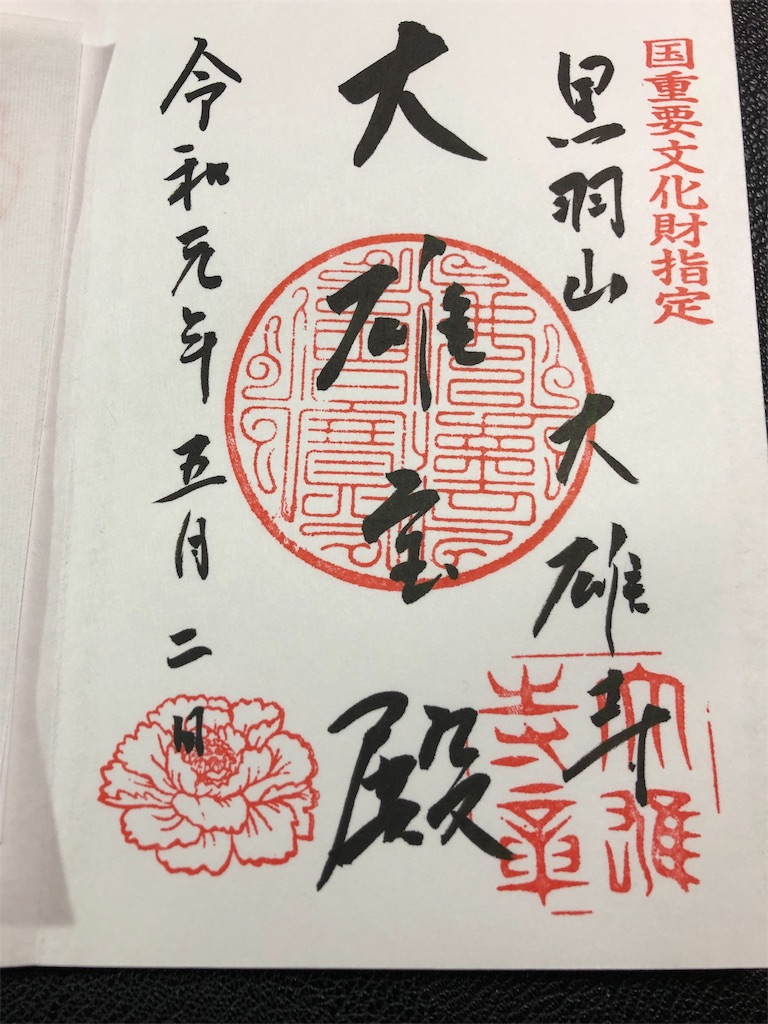 国重要文化財指定
黒羽山 大雄寺
大雄宝殿
令和元年五月二日
大雄
寺章